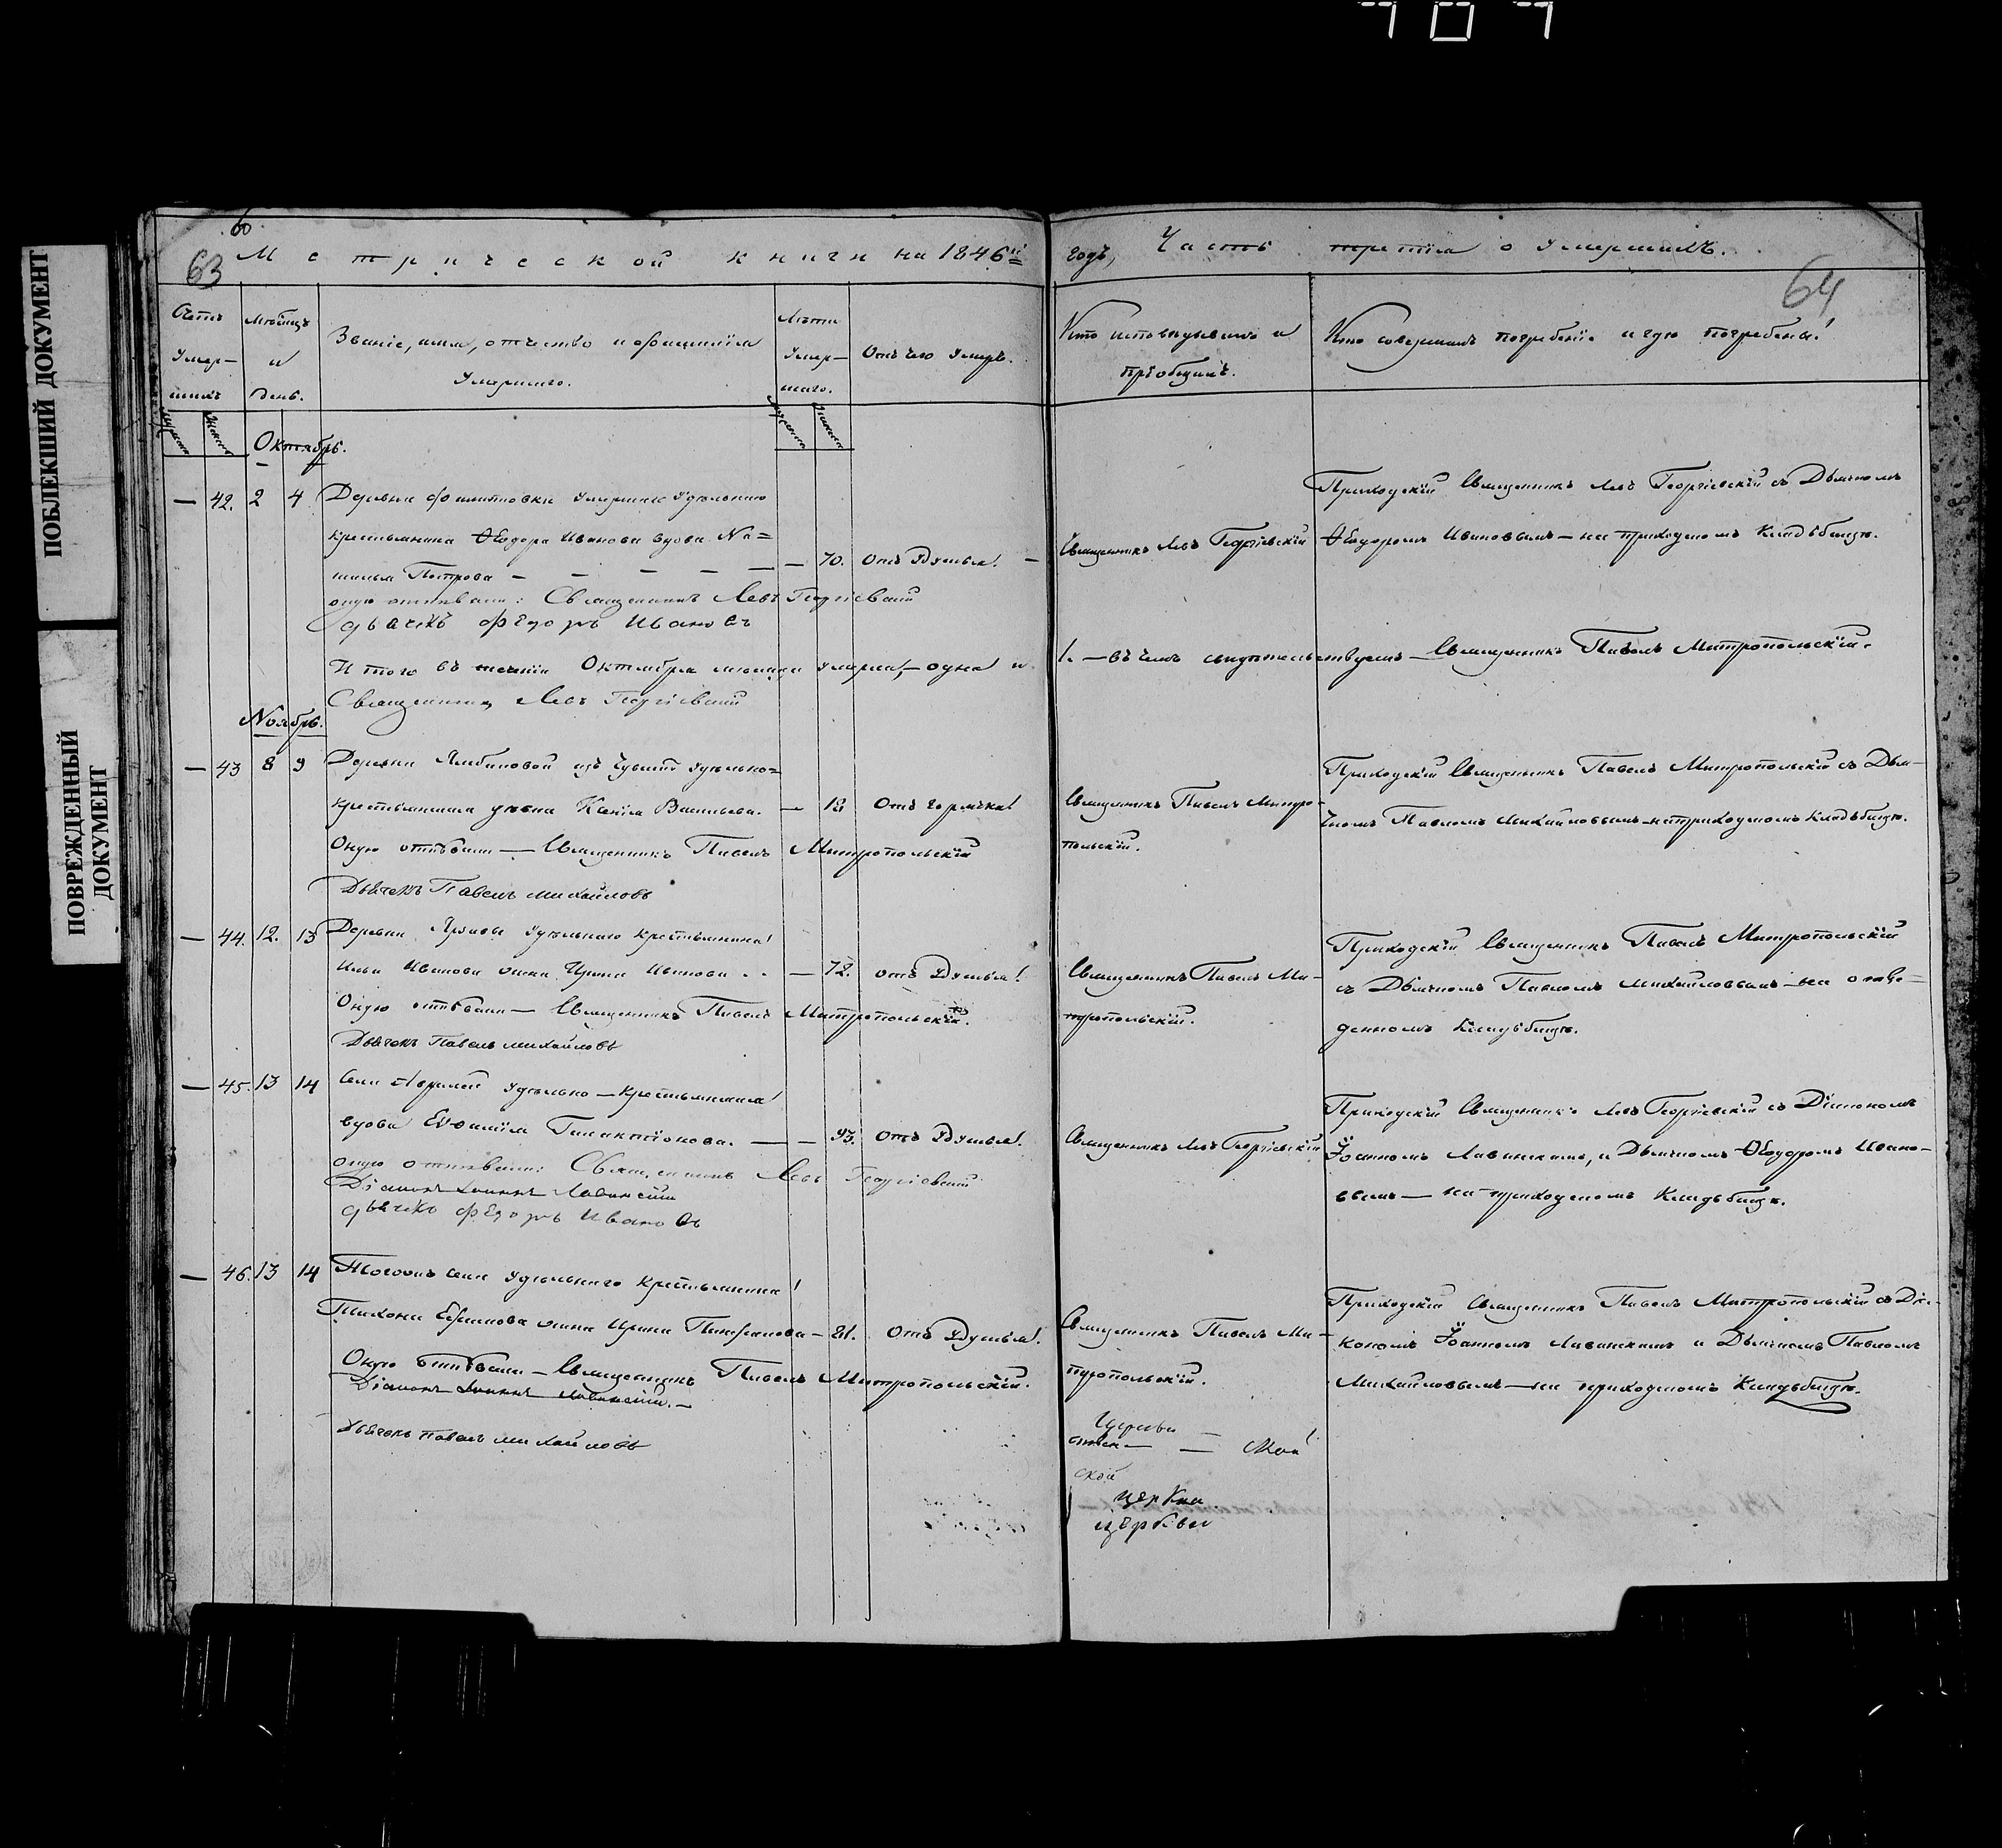 ПОБЛЕКШИЙ ДОКУМЕНТ
ПОВРЕЖДЕННЫЙ
ДОКУМЕНТ
63
Метрической книги на 1846й
годъ, Часть третія о умершихъ.
64
Счетъ
умер-
шихъ
Мѣсяцъ
и
день.
Званіе, имя, отчество и фамилія
умершаго.
Лѣта
умер-
шаго.
Отъ чего умеръ.
Кто исповѣдывалъ и
пріобщилъ.
Кто совершалъ погребеніе и гдѣ погребены.
Октябрь.
— 42. 2 4 Деревни умершаго удѣльнаго
крестьянина Ѳеодора Иванова вдова На=
талья Петрова — — — — — — 70. Отъ удушья. —
оную отпѣвали: Священникъ Левъ Георгіевскій
дьячекъ Федоръ Ивановъ
Священникъ Левъ Георгіевскій
Приходскій Священникъ Левъ Георгіевскій съ Дьячкомъ
Ѳеодоромъ Ивановымъ — на приходскомъ кладбищѣ.
Итого въ теченіи Октября мѣсяца умерла — одна
1. — въ чемъ свидѣтельствуемъ — Священникъ Павелъ Митропольскій.
Священникъ Левъ Георгіевскій
Ноябрь.
— 43 8 9 Деревни изъ Чувашъ удѣльно=
крестьянская дѣвка Ксенія Васильева. — 18 Отъ горячки
Оную отпѣвали — Священникъ Павелъ Митропольскій
Дьячекъ Павелъ Михайловъ
Священникъ Павелъ Митро-
польскій.
Приходскій Священникъ Павелъ Митропольскій съ Дья-
чкомъ Павломъ Михайловымъ — на приходскомъ кладбищѣ.
— 44. 12. 13 Деревни удѣльнаго крестьянина
Ильи Иванова жена Ирина Иванова . . — 72. отъ удушья.
Оную отпѣвали — Священникъ Павелъ Митропольскій.
Дьячекъ Павелъ Михайловъ
Священникъ Павелъ Ми-
тропольскій.
Приходскій Священникъ Павелъ Митропольскій
съ Дьячкомъ Павломъ Михайловымъ — на отве=
денномъ кладбищѣ.
— 45. 13 14 Села удѣльно — крестьянская
вдова Евѳимія Галактіонова. — — 93. Отъ удушья.
оную отпѣвали: Священникъ Левъ Георгіевскій
Діаконъ Іоаннъ Лавинскій
дьячекъ Федоръ Ивановъ
Священникъ Левъ Георгіевскій
Приходскій Священникъ Левъ Георгіевскій съ Діакономъ
Іоанномъ Лавинскимъ, и Дьячкомъ Ѳеодоромъ Ивано-
вымъ — на приходскомъ кладбищѣ.
— 46. 13 14 Тогожъ села удѣльнаго крестьянина
Тихона Ефимова жена Ирина — 81. Отъ удушья.
Оную отпѣвали — Священникъ Павелъ Митропольскій.
Діаконъ Іоаннъ Лавинскій. —
Дьячекъ Павелъ Михайловъ
Священникъ Павелъ Ми-
тропольскій.
Приходскій Священникъ Павелъ Митропольскій съ Діа-
кономъ Іоанномъ Лавинскимъ и Дьячкомъ Павломъ
Михайловымъ — на приходскомъ кладбищѣ.
ской
церкви